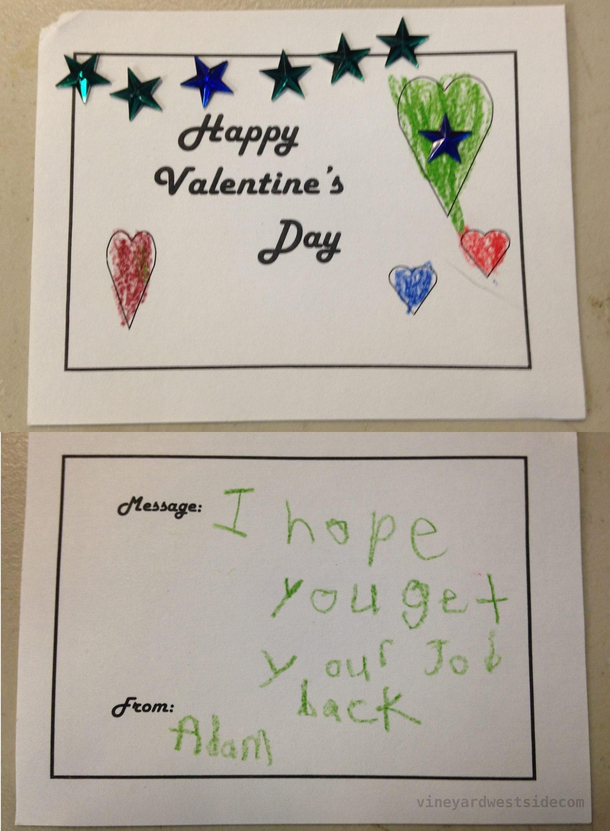 Happy
Valentine's
Day
Message: I hope
you get
your Job
back
From:
Adam
vineyardwestsidecom